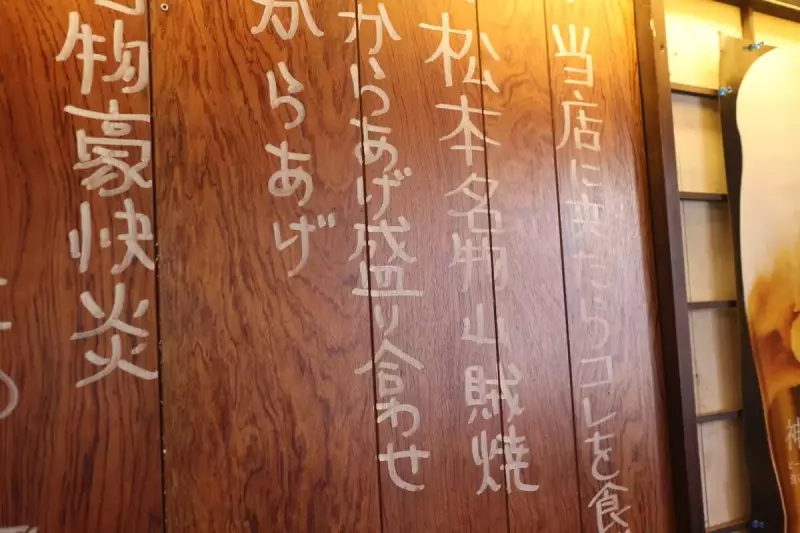 当店に来たらコレを食
松本名物山賊焼
からあげ盛り合わせ
からあげ
物豪快炎